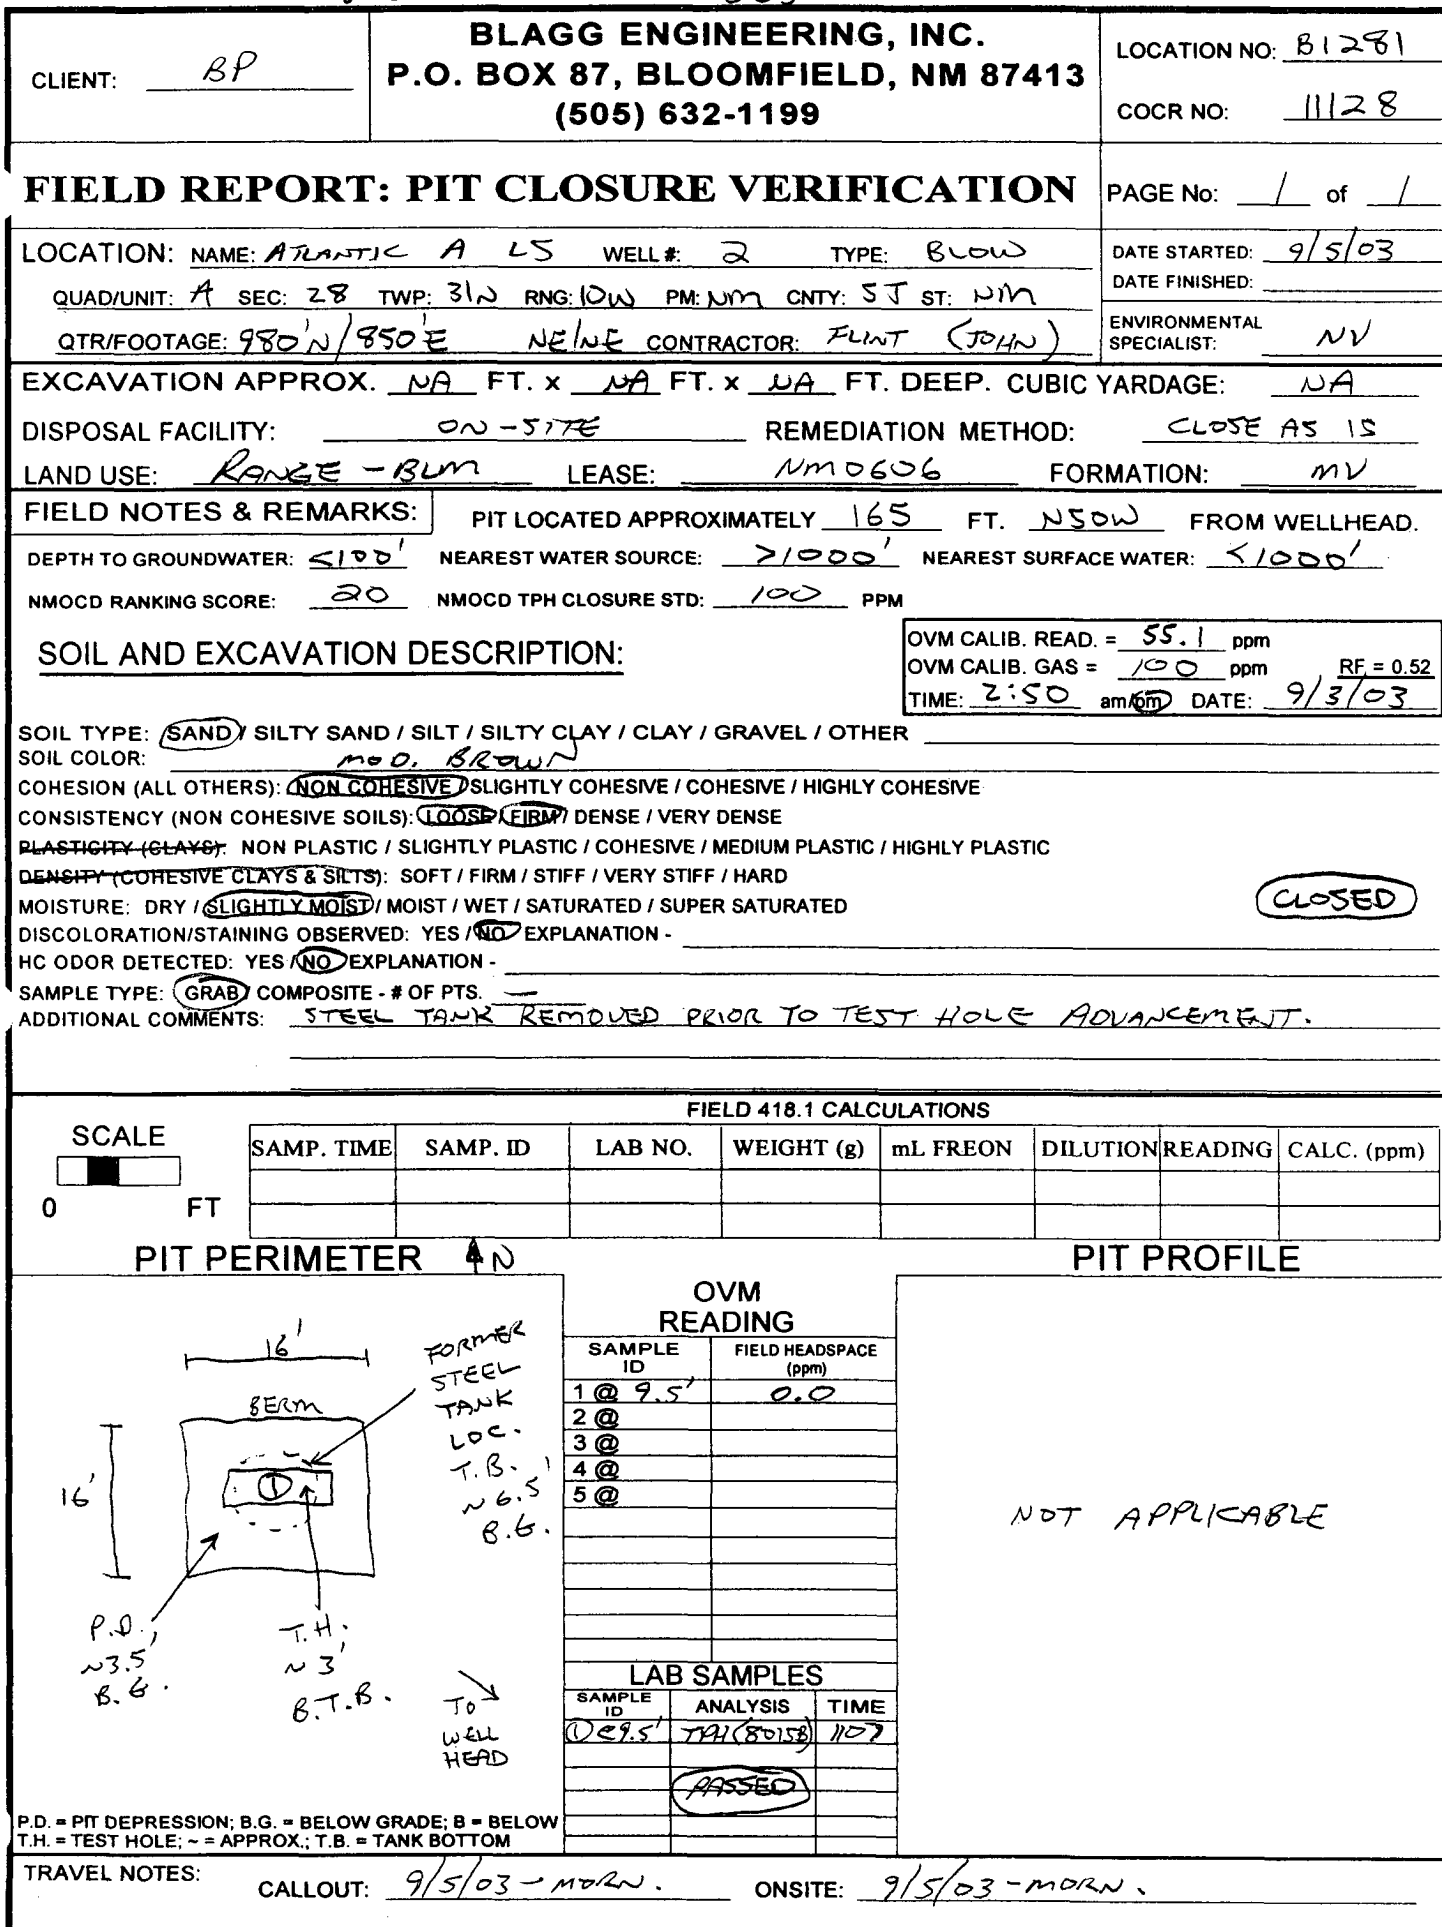 BLAGG ENGINEERING, INC.
P.O. BOX 87, BLOOMFIELD, NM 87413
(505) 632-1199
CLIENT: BP
LOCATION NO: B1281
COCR NO: 11128
FIELD REPORT: PIT CLOSURE VERIFICATION
PAGE No: 1 of 1
LOCATION: NAME: ATLANTIC A LS WELL #: 2 TYPE: BLOW
QUAD/UNIT: A SEC: 28 TWP: 31N RNG: 10W PM: NM CNTY: SJ ST: NM
QTR/FOOTAGE: 980'N/850'E NE/NE CONTRACTOR: FLINT (JOHN)
DATE STARTED: 9/5/03
DATE FINISHED:
ENVIRONMENTAL
SPECIALIST: NV
EXCAVATION APPROX. NA FT. x NA FT. x NA FT. DEEP. CUBIC YARDAGE: NA
DISPOSAL FACILITY: ON-SITE REMEDIATION METHOD: CLOSE AS IS
LAND USE: RANGE - BLM LEASE: NM0606 FORMATION: MV
FIELD NOTES & REMARKS: PIT LOCATED APPROXIMATELY 165 FT. N50W FROM WELLHEAD.
DEPTH TO GROUNDWATER: <100' NEAREST WATER SOURCE: >1000' NEAREST SURFACE WATER: <1000'
NMOCD RANKING SCORE: 20 NMOCD TPH CLOSURE STD: 100 PPM
SOIL AND EXCAVATION DESCRIPTION:
OVM CALIB. READ. = 55.1 ppm
OVM CALIB. GAS = 100 ppm RF = 0.52
TIME: 2:50 am/pm DATE: 9/3/03
SOIL TYPE: SAND / SILTY SAND / SILT / SILTY CLAY / CLAY / GRAVEL / OTHER
SOIL COLOR: MOD. BROWN
COHESION (ALL OTHERS): NON COHESIVE / SLIGHTLY COHESIVE / COHESIVE / HIGHLY COHESIVE
CONSISTENCY (NON COHESIVE SOILS): LOOSE / FIRM / DENSE / VERY DENSE
PLASTICITY (CLAYS): NON PLASTIC / SLIGHTLY PLASTIC / COHESIVE / MEDIUM PLASTIC / HIGHLY PLASTIC
DENSITY (COHESIVE CLAYS & SILTS): SOFT / FIRM / STIFF / VERY STIFF / HARD
MOISTURE: DRY / SLIGHTLY MOIST / MOIST / WET / SATURATED / SUPER SATURATED
CLOSED
DISCOLORATION/STAINING OBSERVED: YES / NO EXPLANATION -
HC ODOR DETECTED: YES / NO EXPLANATION -
SAMPLE TYPE: GRAB / COMPOSITE - # OF PTS. —
ADDITIONAL COMMENTS: STEEL TANK REMOVED PRIOR TO TEST HOLE ADVANCEMENT.
FIELD 418.1 CALCULATIONS
SCALE
0 FT
SAMP. TIME SAMP. ID LAB NO. WEIGHT (g) mL FREON DILUTION READING CALC. (ppm)
PIT PERIMETER N
PIT PROFILE
16'
BERM
16'
FORMER
STEEL
TANK
LOC.
T.B.
~6.5'
B.G.
1
P.D.
~3.5'
B.G.
T.H.
~3'
B.T.B.
TO
WELL
HEAD
OVM
READING
SAMPLE
ID
FIELD HEADSPACE
(ppm)
1 @ 9.5' 0.0
2 @
3 @
4 @
5 @
LAB SAMPLES
SAMPLE
ID
ANALYSIS TIME
1 @ 9.5' TPH (8015B) 1107
PASSED
NOT APPLICABLE
P.D. = PIT DEPRESSION; B.G. = BELOW GRADE; B = BELOW
T.H. = TEST HOLE; ~ = APPROX.; T.B. = TANK BOTTOM
TRAVEL NOTES: CALLOUT: 9/5/03 - MORN. ONSITE: 9/5/03 - MORN.